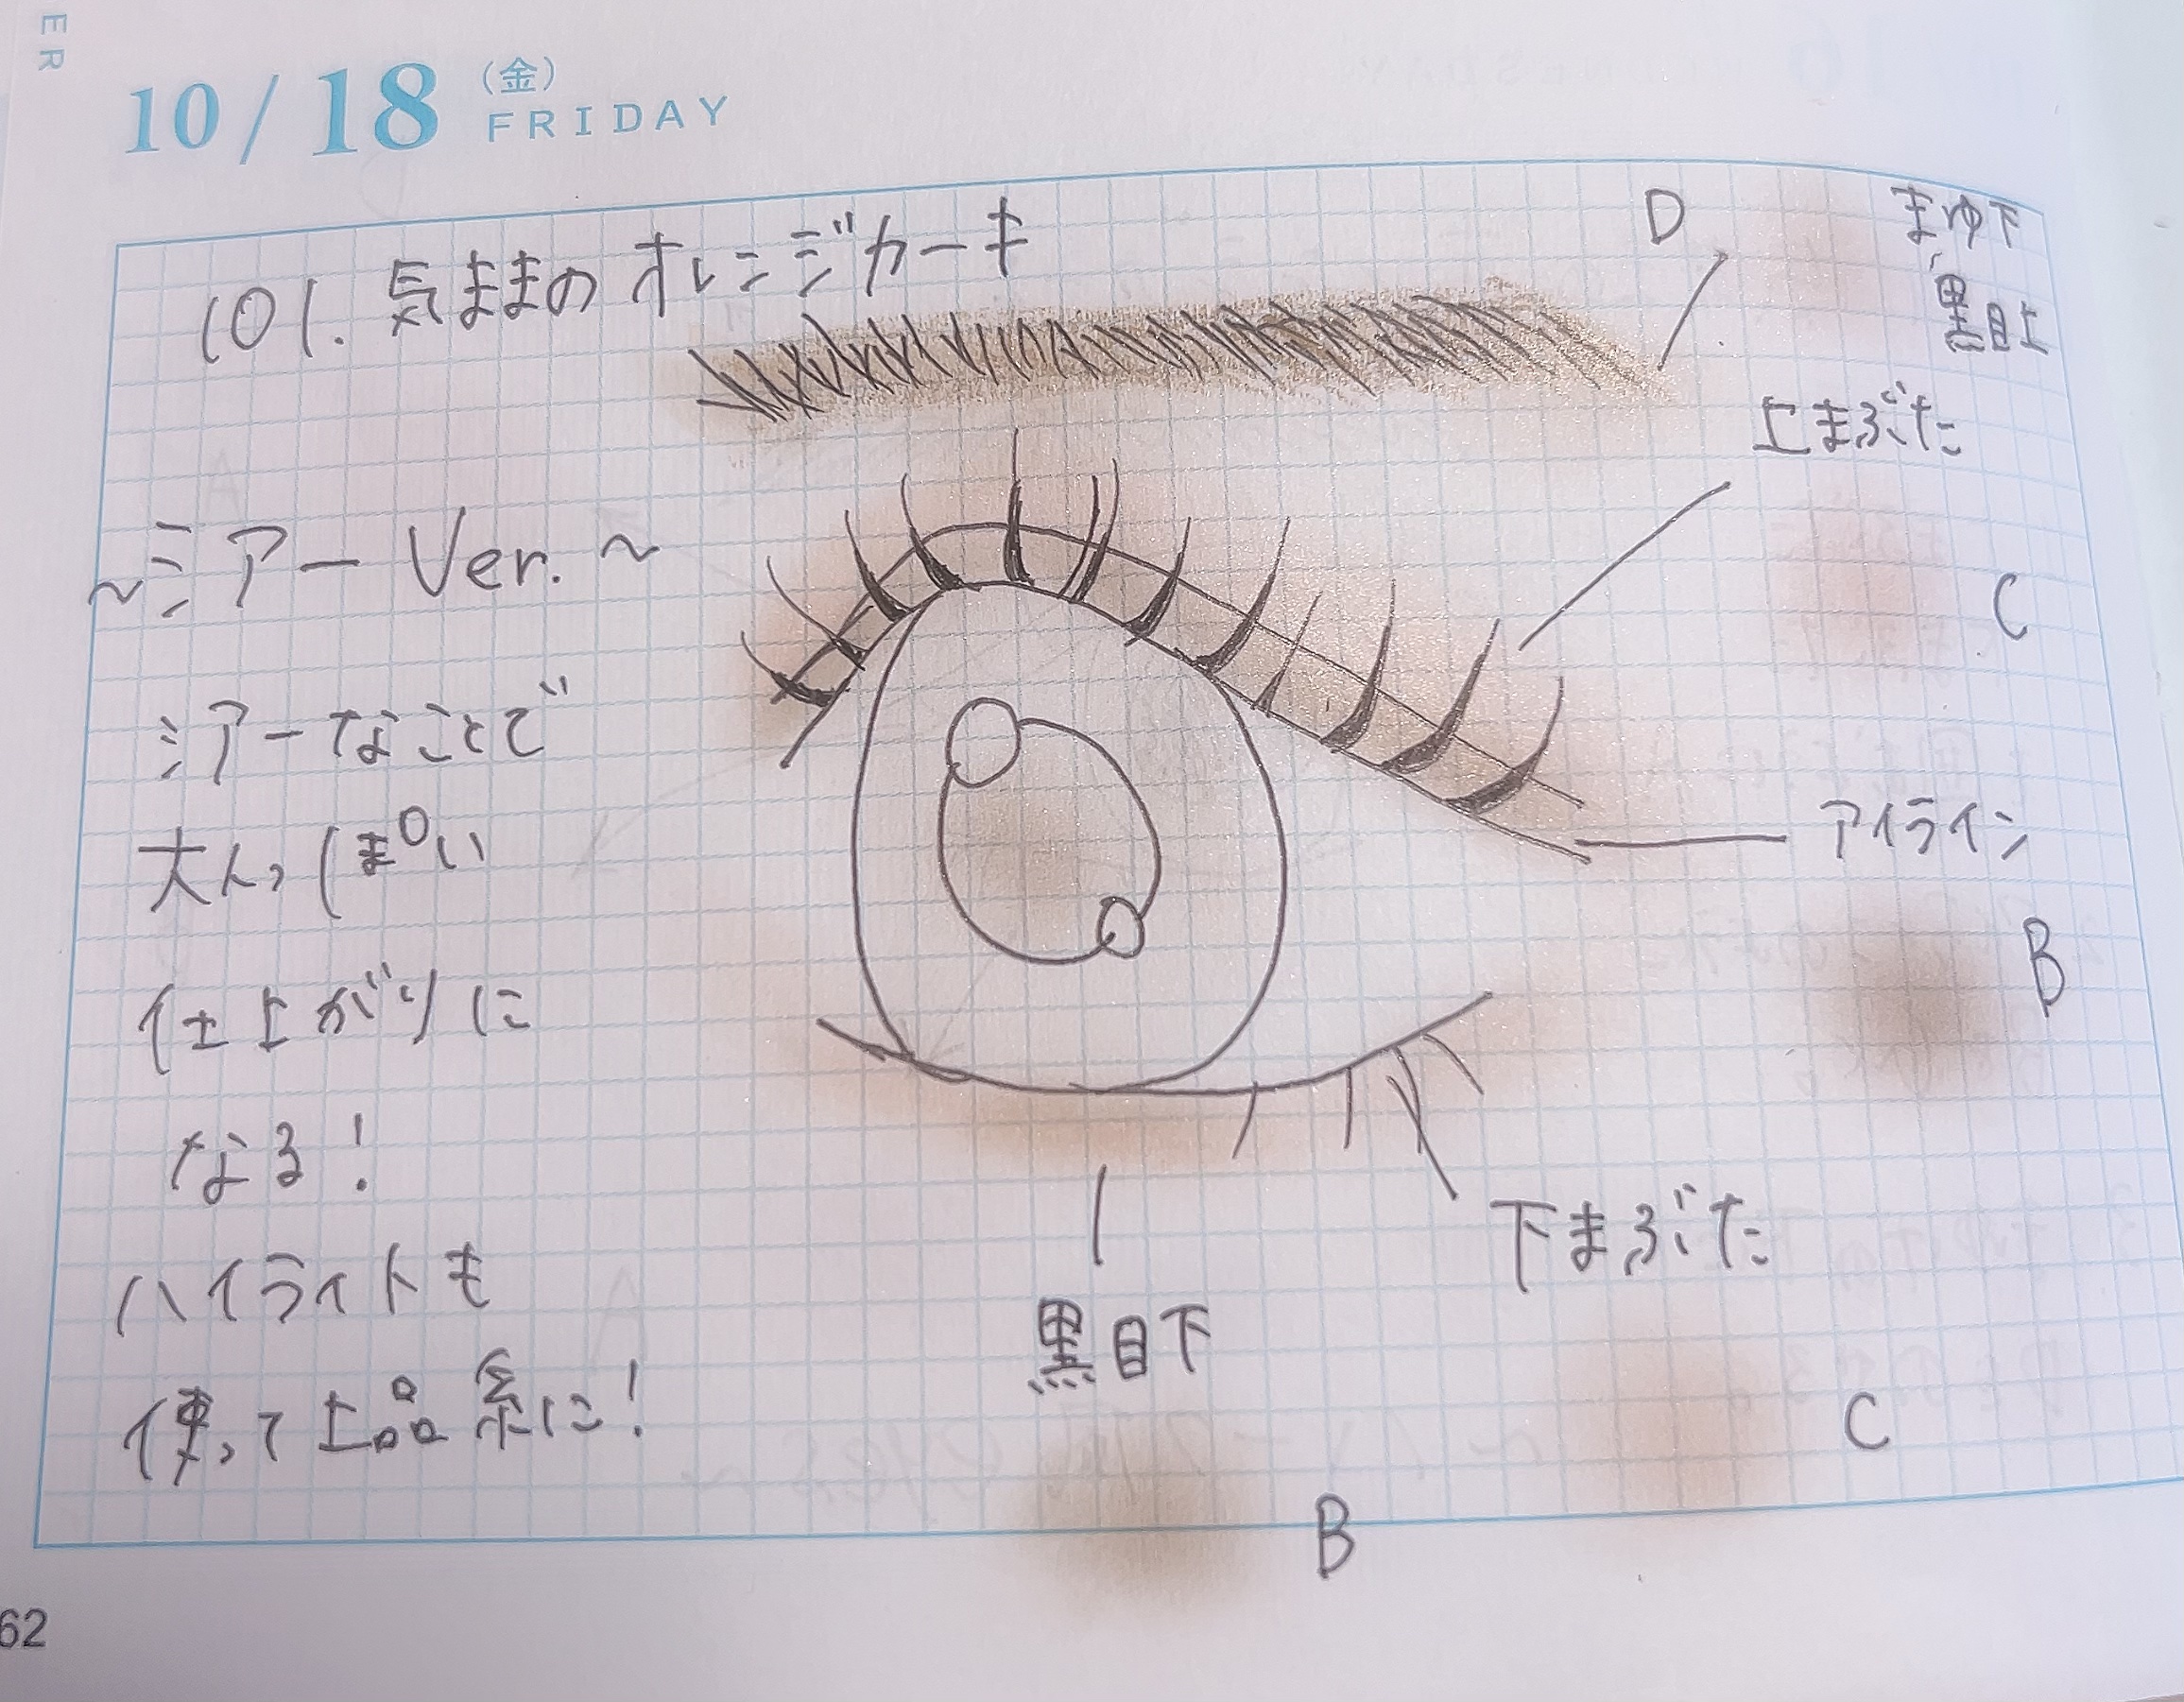 ER
10/18 (金)
FRIDAY
101. 気ままのオレンジカーキ
~シアーVer.~
シアーなことで
大人っぽい
仕上がりに
なる!
ハイライトも
使って上品系に!
D
まゆ下
黒目上
上まぶた
C
アイライン
B
下まぶた
C
黒目下
B
62